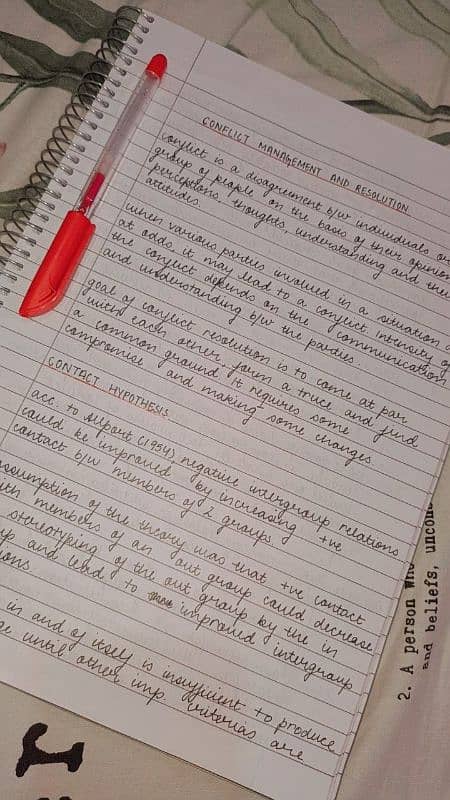 CONFLICT MANAGEMENT AND RESOLUTION
conflict is a disagreement b/w individuals or
group of people on the basis of their opinion
perceptions, thoughts, understanding and their
attitudes.
when various parties involved in a situation
at odds it may lead to a conflict. intensity of
the conflict depends on the communication
and understanding b/w the parties.
goal of conflict resolution is to come at par
with each other, form a truce and find
a common ground. It requires some
compromise and making some changes
CONTACT HYPOTHESIS
acc. to Allport (1954) negative intergroup relations
could be improved by increasing +ve
contact b/w members of 2 groups.
assumption of the theory was that +ve contact
with members of an out group could decrease
stereotyping of the out group by the in
and lead to improved intergroup
in and of itself is insufficient to produce
until other imp. criterias are
2. A person who
and beliefs, uncon
r